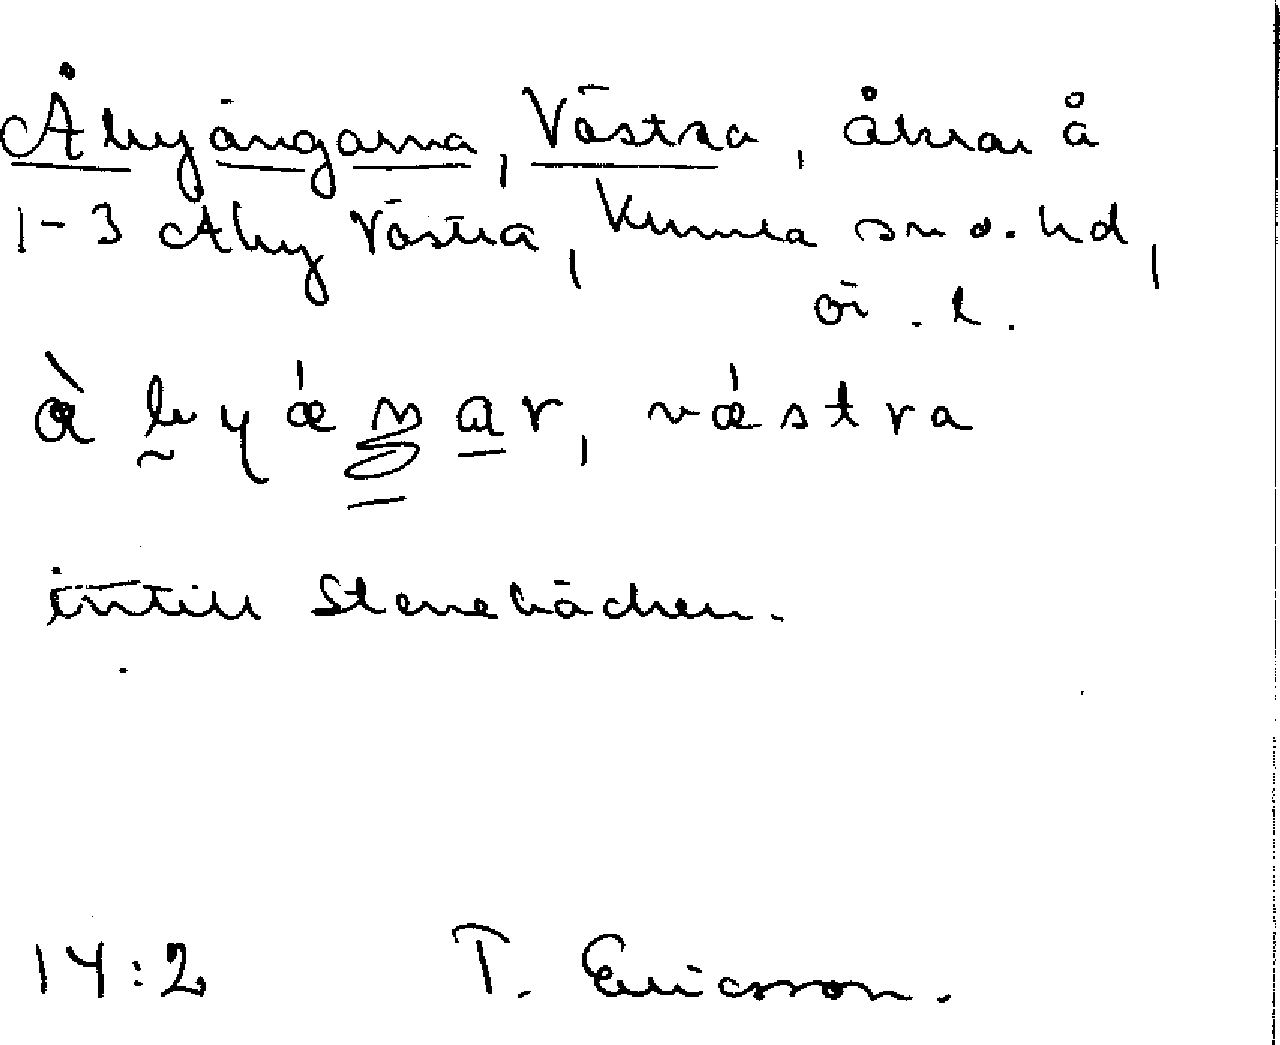 Åbyängarna, Västra, åkrar å
1-3 Åby Västra, Kumla sn o. hd,
ör. l.
intill Stenebäcken.
14:2 T. Ericsson.